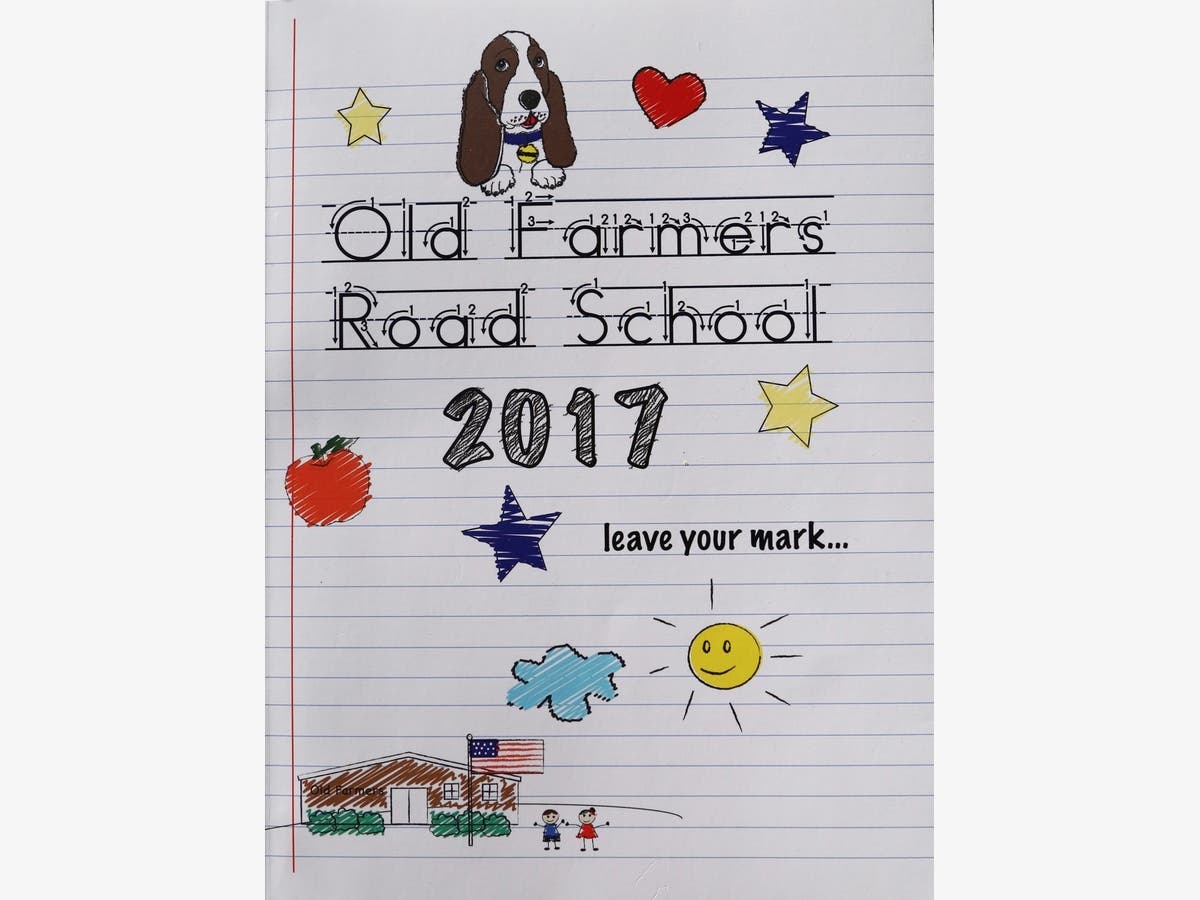 Old Farmers
Road School
2017
leave your mark...
Old Farmers